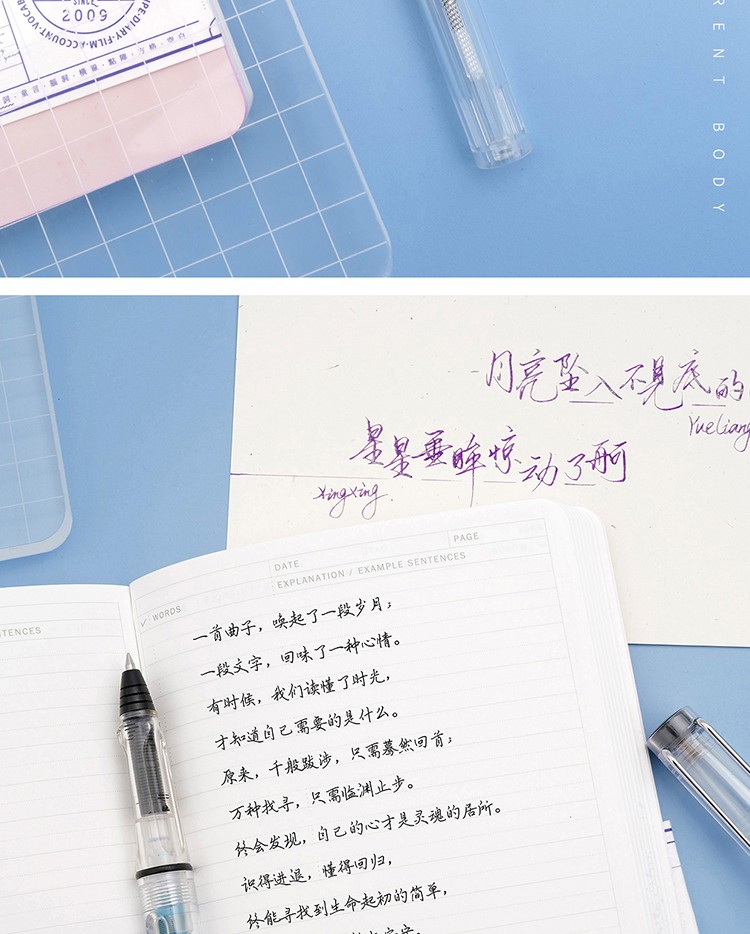 SINCE
2009
TYPE·DIARY·FILM·ACCOUNT·VOCAB
RENT BODY
月亮坠入不见底的
Yueliang
星星垂眸惊动了
xingxing
DATE
PAGE
EXPLANATION / EXAMPLE SENTENCES
✓ WORDS
TENCES
一首曲子，唤起了一段岁月；
一段文字，回味了一种心情。
有时候，我们读懂了时光，
才知道自己需要的是什么。
原来，千般跋涉，只需蓦然回首；
万种找寻，只需临渊止步。
终会发现，自己的心才是灵魂的居所。
识得进退，懂得回归，
终能寻找到生命起初的简单，